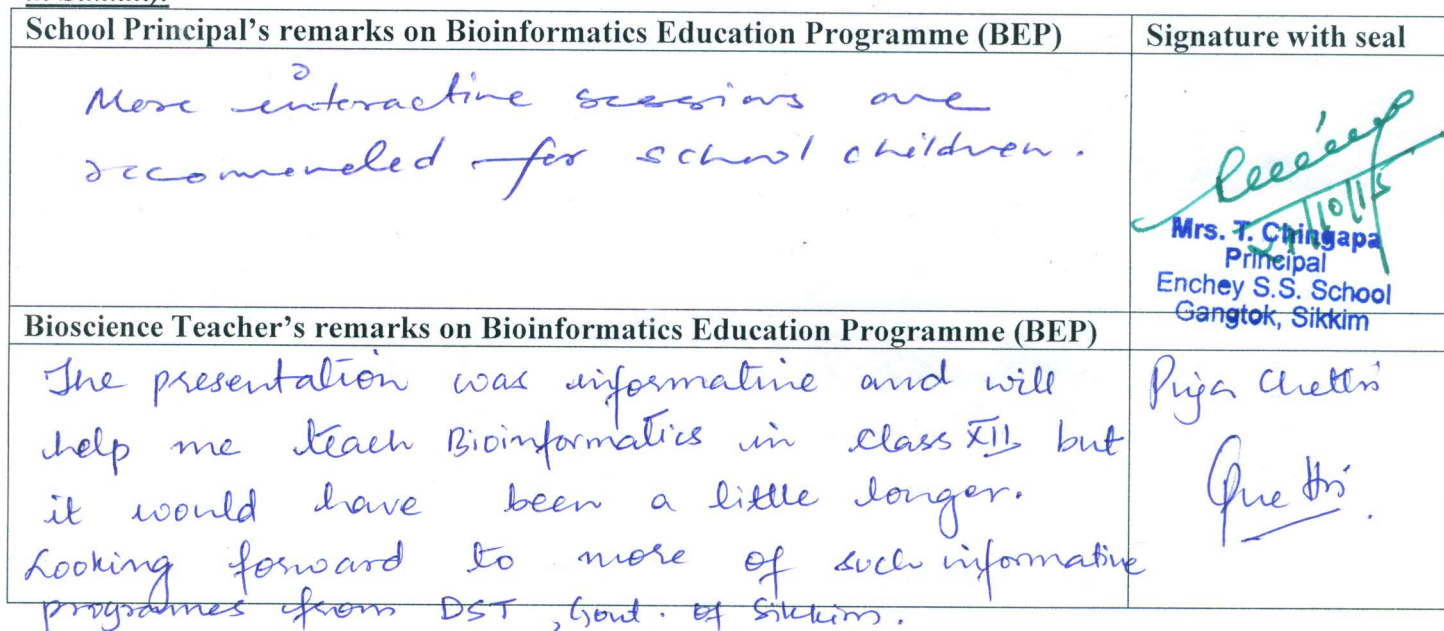 School Principal's remarks on Bioinformatics Education Programme (BEP)
Signature with seal
More interactive sessions are
reccomended for school children.
Mrs. T. Chingapa
Principal
Enchey S.S. School
Gangtok, Sikkim
Bioscience Teacher's remarks on Bioinformatics Education Programme (BEP)
The presentation was informative and will
help me teach Bioinformatics in class XII but
it would have been a little longer.
Looking forward to more of such informative
programes from DST, Govt. of Sikkim.
Priya Chettri
Chettri